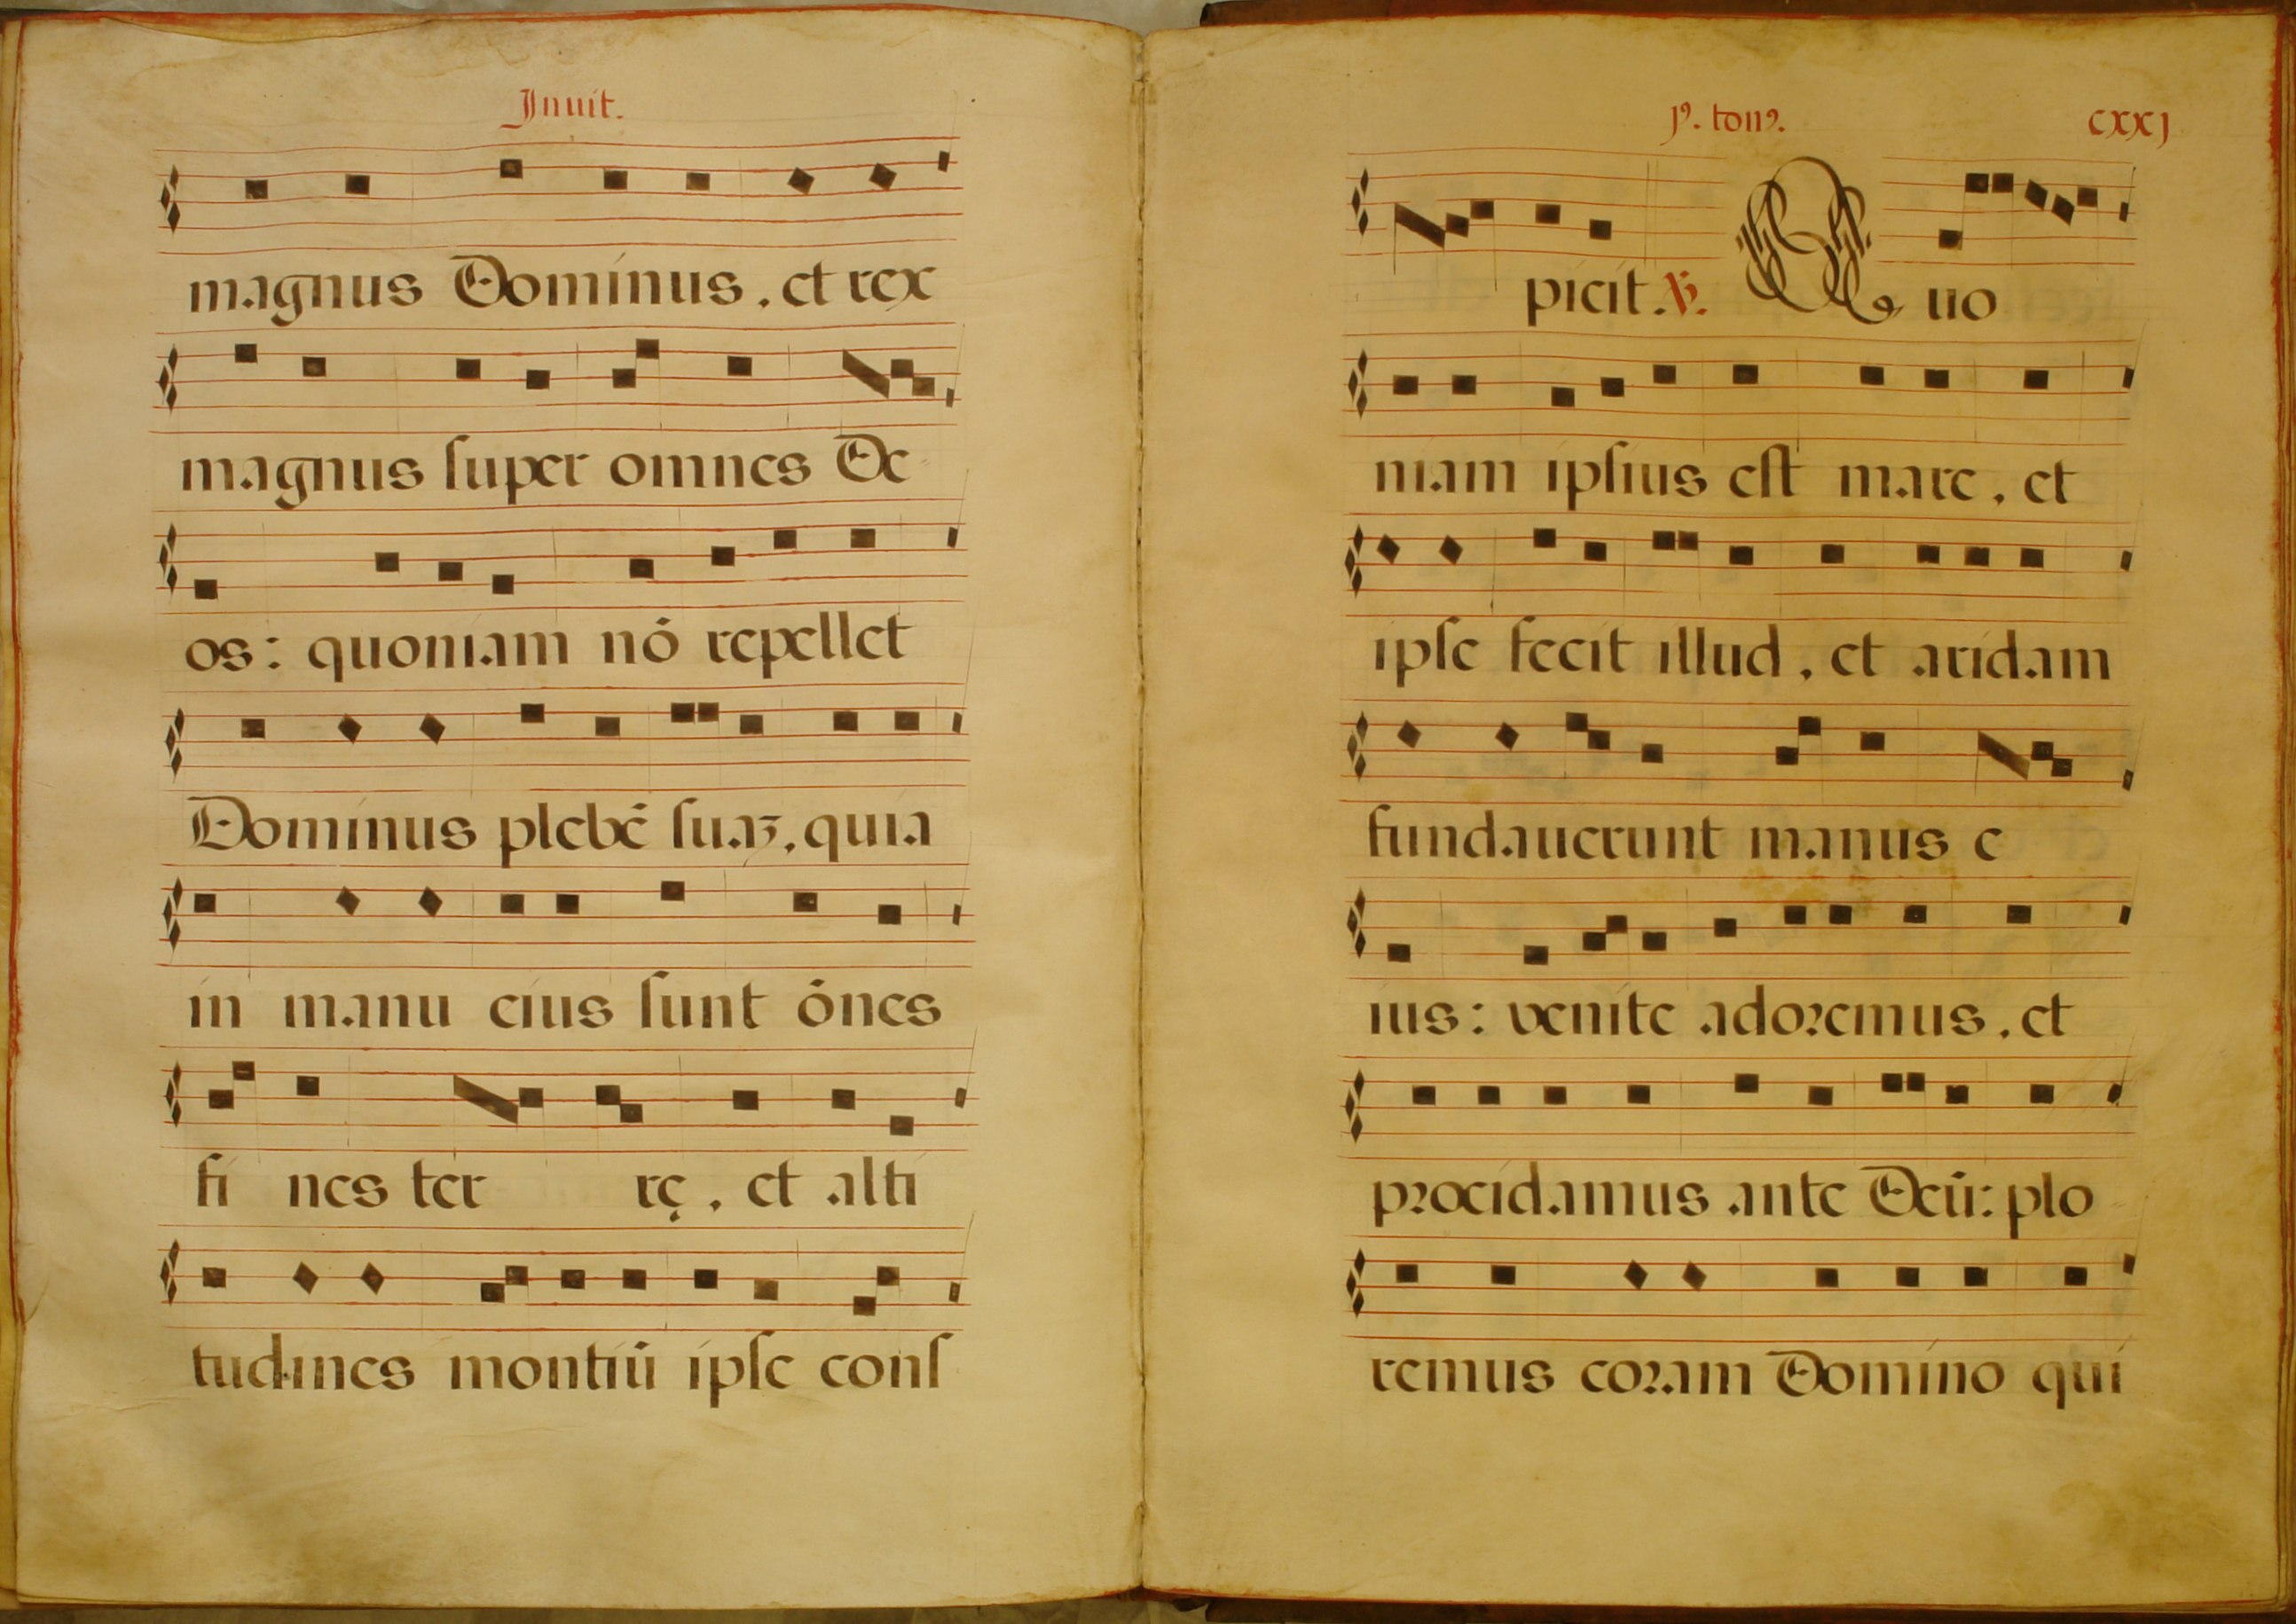 Inuit.
magnus Dominus, et rex
magnus ſuper omnes De
os: quoniam nō repellet
Dominus plebē ſuaʒ, quia
in manu eius ſunt ōnes
fi nes ter rę, et alti
tudines montiū ipſe conſ
pꝰ. tonꝰ. cxxj
picit. ℣. Quo
niam ipſius eſt mare, et
ipſe fecit illud, et aridam
fundauerunt manus e
ius: venite adoꝛemus, et
pꝛocidamus ante Deū: plo
remus coꝛam Domino qui